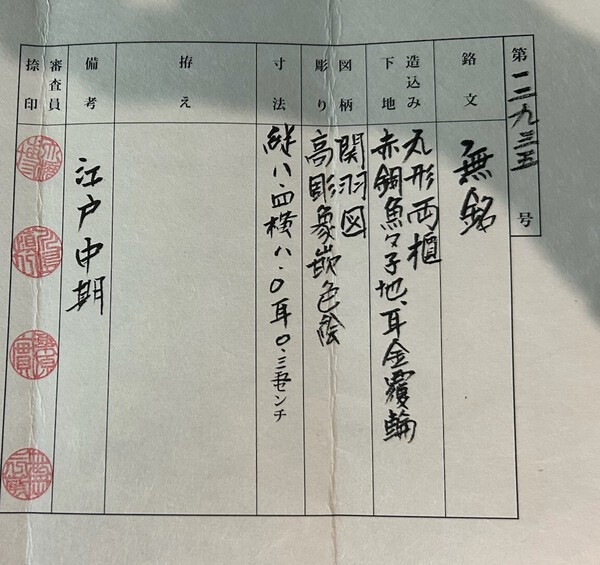 第二二九三五号
銘文
無銘
造込み
丸形両櫃
下地
赤銅魚々子地、耳金覆輪
図柄
関羽図
彫り
高彫象嵌色絵
寸法
縦八.四横八.〇耳〇.三五センチ
拵え
備考
江戸中期
審査員
捺印